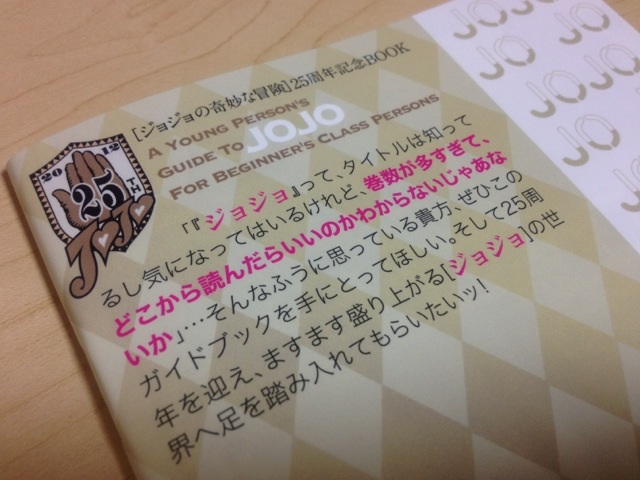 [ジョジョの奇妙な冒険]25周年記念BOOK
A YOUNG PERSON'S
GUIDE TO JOJO
FOR BEGINNER'S CLASS PERSONS
2012
25TH
JOJO
「『ジョジョ』って、タイトルは知って
るし気になってはいるけれど、巻数が多すぎて、
どこから読んだらいいのかわからないじゃあな
いか」…そんなふうに思っている貴方、ぜひこの
ガイドブックを手にとってほしい。そして25周
年を迎え、ますます盛り上がる[ジョジョ]の世
界へ足を踏み入れてもらいたいッ!
JOJO
JO JOJO
JO JOJO
JO
JO